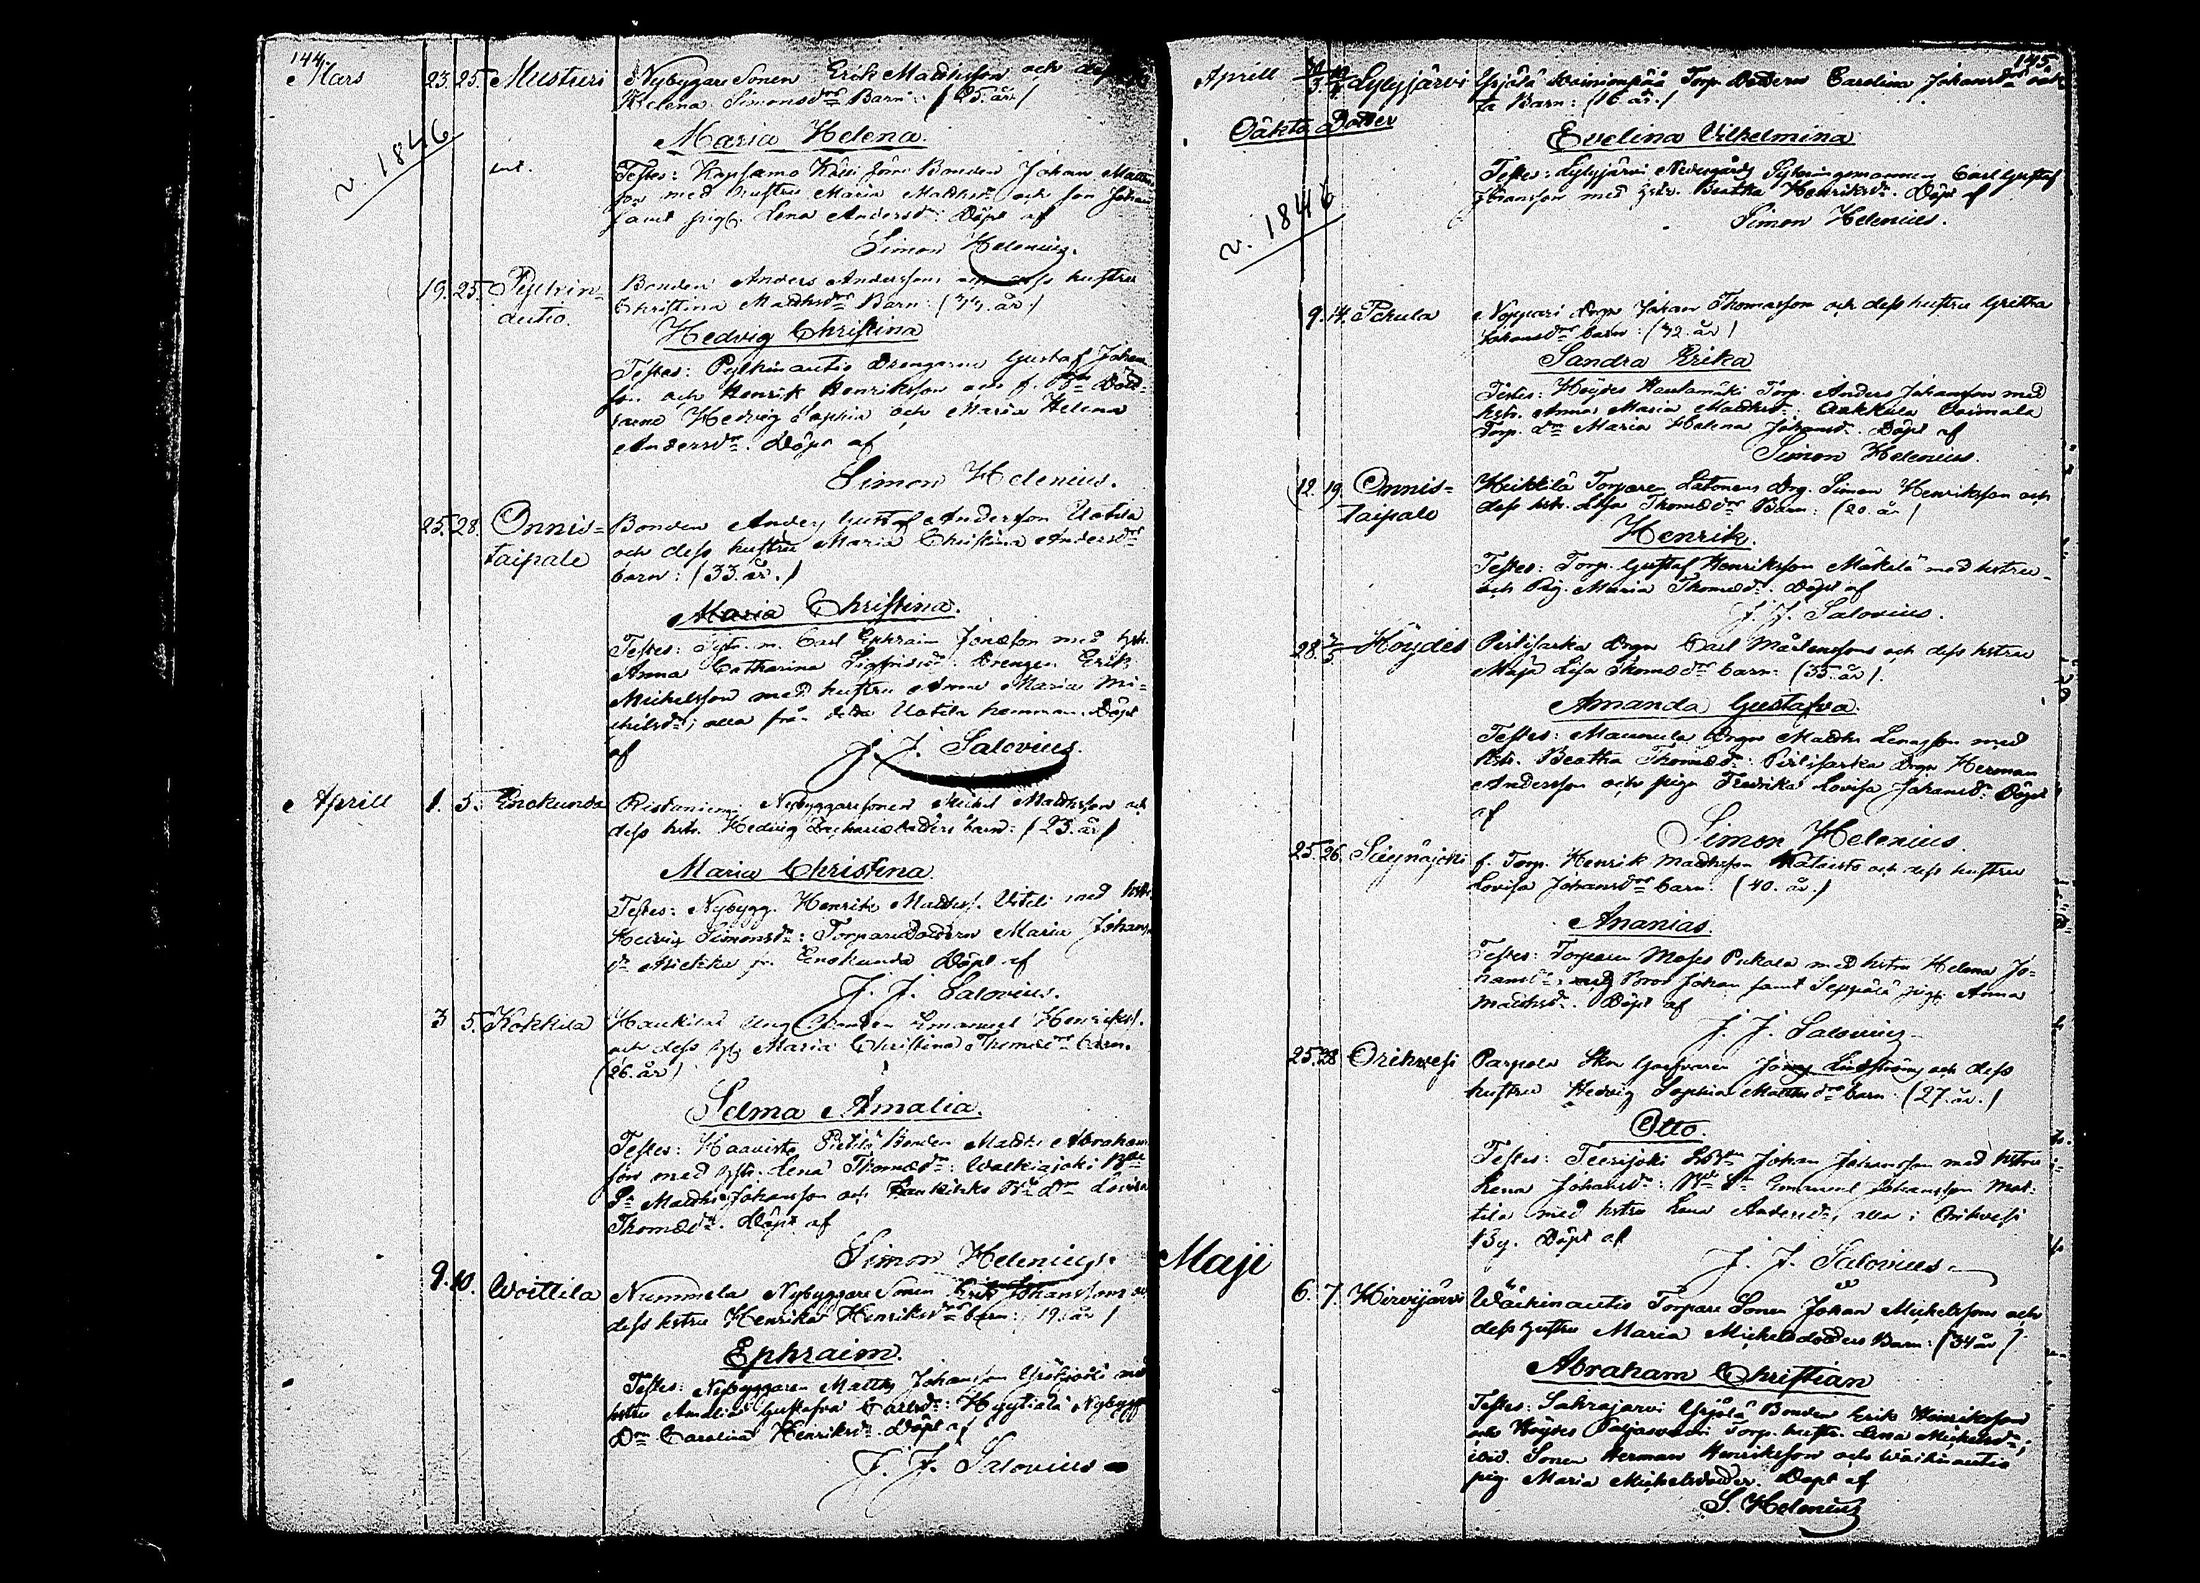 144.
Mars 23. 25. Musturi Nybyggare Sonen Erik Matthsson och dess
Helena Simonsdrs Barn: (25. år)
v. 1846
Maria Helena.
Testes: Kapsamo Bonden Johan Matths
son med hustru Maria Matthsdr och son Johan
samt pig. Lena Andersdr: Döpt af
Simon Helenius.
19. 25. Bonden Anders Anderssons och dess hustru
Christina Matthsdrs Barn: (44. år)
Hedvig Christina
Testes: Drengarne Gustaf Johans
son och Henrik Henriksson och
Hedvig Sophia och Maria Helena
Andersdr. Döpt af
Simon Helenius.
25. 28. Onnis=
taipale
Bonden Anders Gustaf Andersson Uotila
och dess hustru Maria Christina Andersdrs
barn: (33. år.)
Maria Christina.
Testes: Carl Ephraim Jonasson med hstr.
Anna Catharina Sigfridsdr: Drengen Erik
Michelsson med hustru Anna Maria Mi=
chelsdr; alla från Uotila hemman. Döpt
af J. J. Salovius.
Aprill 1. 5. Enokunda Nybyggaresonen Michel Matthsson och
dess hstr. Hedvig Zachariedotters barn: (23. år)
Maria Christina
Testes: Nybygg. Henrik Matthss. Uteli med hstr.
Hedvig Simonsdr: Torparedottren Maria Johans
dr fr. Enokunda Döpt af
J. J. Salovius.
3 5. Kokkila Haukilas Emanuel Henrikss.
och dess Maria Christina Thomædrs barn.
(26. år)
Selma Amalia.
Testes: Haavisto Pietilä Bonden Matths Abrahams
son med hstr. Lena Thomædr: Walkiajoki
Sn Matths Johansson och Dn Lovisa
Thomædr. Döpt af
Simon Helenius.
9. 10. Woittila Nummela Nybyggare Sonen Erik Johanssons och
dess hstru Henrika Henriksdrs barn: 19. år)
Ephraim.
Testes: Nybyggaren Matths Johansson Yräjoki med
hstru Amalia Gustafva Carlsdr: Hyytiälä Nybygg
Drn Carolina Henriksdr. Döpt af
J. J. Salovius
145.
Aprill Lylyjärvi Yrjölä Torp. Dottern Carolina Johansdrs oäk
ta Barn: (16. år.)
Oäkta Dotter
v. 1846
Evelina Vilhelmina
Testes: Lylyjärvi Carl Gustaf
Johansson med hstr. Beatha Henriksdr. Döpt af
Simon Helenius.
9. 14. Pekula Noppari Drgn Johan Thomasson och dess hustru Gretha
Johansdrs barn: (42. år)
Sandra Erika
Testes: Höydes Hautamäki Torp. Anders Johansson med
hstr. Anna Maria Matthsdr: Aakkula
Torp. drn Maria Helena Johansdr. Döpt af
Simon Helenius.
12. 19. Onnis=
taipale
Heikkilä Torparen Latonens Drg. Simon Henriksson och
dess hstr. Lisa Thomædrs Barn: (20. år)
Henrik.
Testes: Torp. Gustaf Henriksson Mäkelä med hstru
och Pig. Maria Thomædr. Döpt af
J. J. Salovius.
28. 3/5 Höydes Pirlisarka Drgn Carl Mårtenssons och dess hstru
Maja Lisa Thomædrs barn: (35. år).
Amanda Gustafva.
Testes: Maunula Drgn Matths med
hstr. Beatha Thomædr: Pirlisarka Drgn Herman
Andersson och piga Fredrika Lovisa Johansdr. Döpt
af
Simon Helenius.
25. 26. f. Torp. Henrik Matthsson och dess hustru
Lovisa Johansdrs barn. (40. år.)
Ananias.
Testes: Torparen Moses Pukala med hstru Helena Jo=
hansdr, med Bror Johan samt Seppälä pig. Anna
Matthsdr. Döpt af
J. J. Salovius
25. 28 Orihvesi Parpola Skom Jonas Lindström och dess
hustru Hedvig Sophia Matthsdrs barn. (27. år.)
Otto.
Testes: Teerijoki Johan Johansson med hstru
Lena Johansdr: Emanuel Johansson Mat=
tila med hstru Lena Andersdr, alla i Orihvesi
By. Döpt af
J. J. Salovius
Maji
6. 7. Hirvijärvi Wäihinautio Torpare Sonen Johan Michelssons och
dess hustru Maria Michelsdotters Barn: (34 år)
Abraham Christian
Testes: Sahrajärvi Yrjölä Bonden Erik Henriksson
och Höydes Torp. hustr. Lena Michelsdr;
ibid. Sonen Herman Henriksson och Wäihinautio
pig. Maria Michelsdotter. Döpt af
S. Helenius